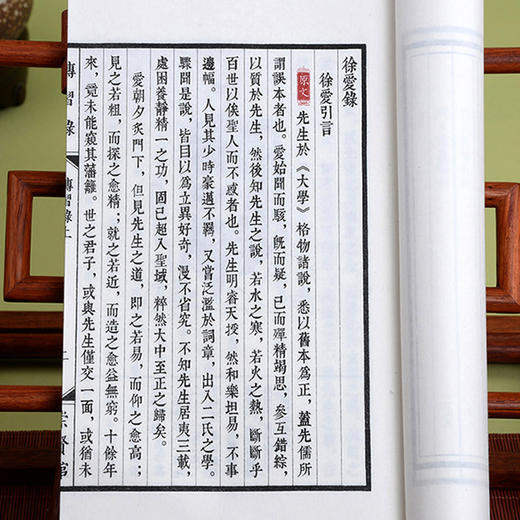 徐愛錄
徐愛引言
原文 先生於《大學》格物諸說，悉以舊本為正，蓋先儒所
謂誤本者也。愛始聞而駭，既而疑，已而殫精竭思，參互錯綜，
以質於先生，然後知先生之說，若水之寒，若火之熱，斷斷乎
百世以俟聖人而不惑者也。先生明睿天授，然和樂坦易，不事
邊幅。人見其少時豪邁不羈，又嘗泛濫於詞章，出入二氏之學。
驟聞是說，皆目以為立異好奇，漫不省究。不知先生居夷三載，
處困養靜精一之功，固已超入聖域，粹然大中至正之歸矣。
愛朝夕炙門下，但見先生之道，即之若易，而仰之愈高；
見之若粗，而探之愈精；就之若近，而造之愈益無窮。十餘年
來，竟未能窺其藩籬。世之君子，或與先生僅交一面，或猶未
傳習錄
傳習錄上
二
崇賢館